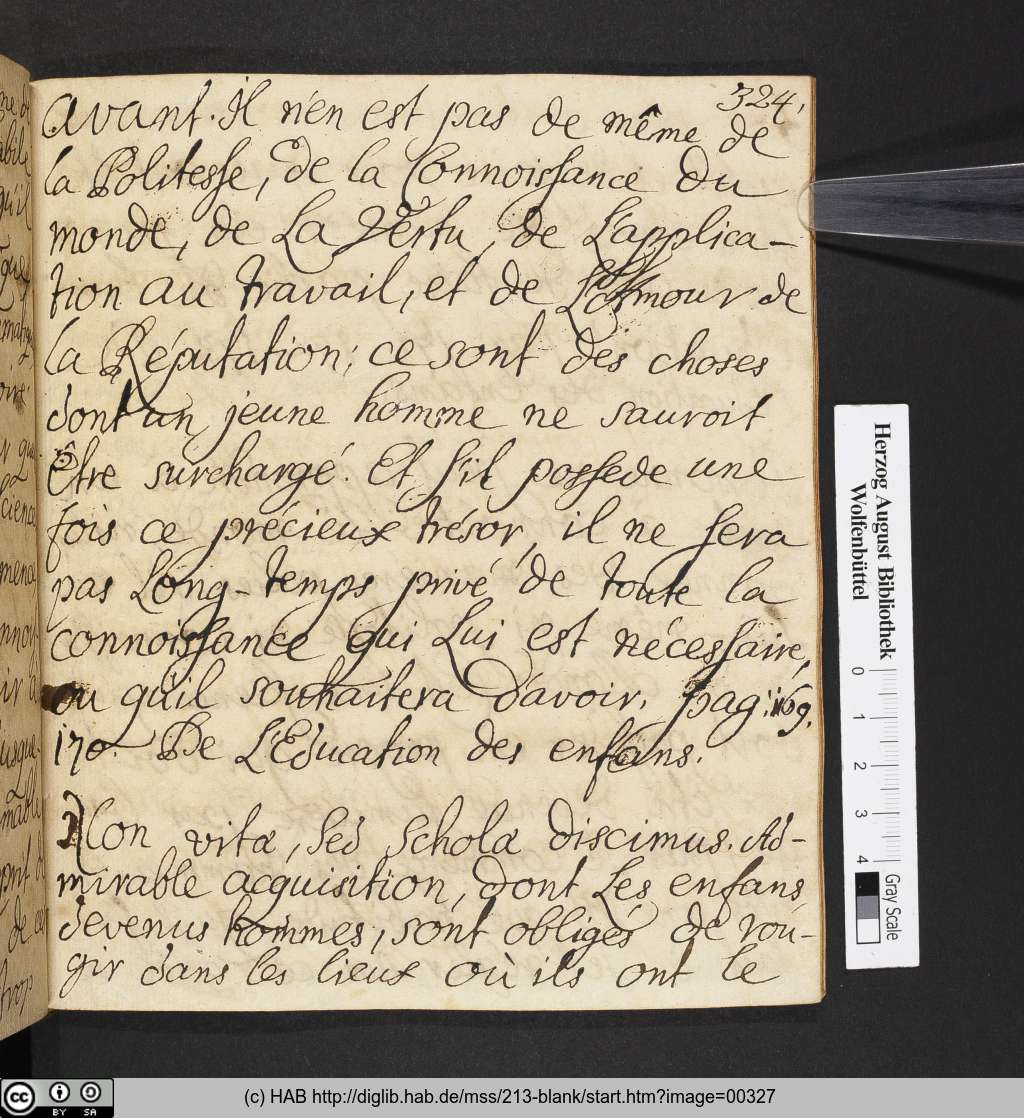 324.
avant. Il n'en est pas de même de
la Politesse, de la Connoissance du
monde, de la Vertu, de L'applica-
tion au travail, et de L'Amour de
la Réputation; ce sont des choses
dont un jeune homme ne sauroit
être surchargé. Et s'il possede une
fois ce précieux trésor, il ne sera
pas Long-temps privé de toute la
connoissance qui Lui est nécessaire,
ou qu'il souhaitera d'avoir. pag: 169.
170. De L'Education des enfans.
Non vitæ, sed scholæ discimus. Ad-
mirable acquisition, dont Les enfans
devenus hommes, sont obligés de rou-
gir dans les lieux où ils ont le
Herzog August Bibliothek
Wolfenbüttel
0 1 2 3 4
Gray Scale
(c) HAB http://diglib.hab.de/mss/213-blank/start.htm?image=00327
cc BY SA